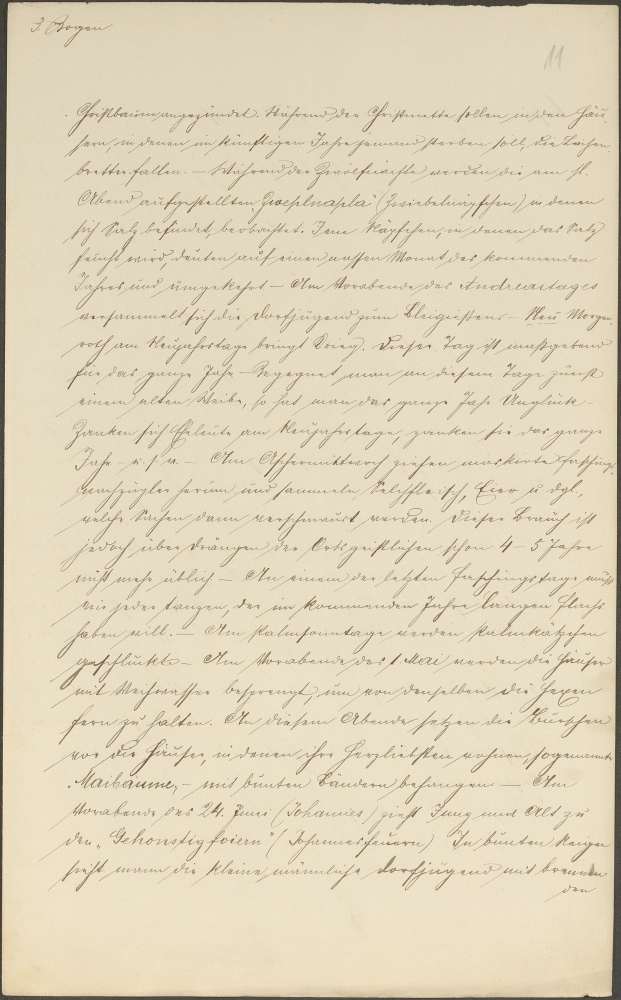 3. Bogen
11
Christbaum angezündet. Während der Christmette sollen in den Häu-
sern, in denen im künftigen Jahre jemand sterben soll, die Leichen-
bretter fallen. — Während der Zwölfnächte werden die am hl.
Abend aufgestellten „Zweplnapla“ (Zwiebelnäpfchen) in denen
sich Salz befindet, beobachtet. Jene Näpfchen, in denen das Salz
feucht wird, deuten auf einen nassen Monat des kommenden
Jahres und umgekehrt — Am Vorabende des Andreastages
versammelt sich die Dorfjugend zum Bleigießen. — Neu Morgen-
roth am Neujahrstage bringt Krieg. Dieser Tag ist maßgebend
für das ganze Jahr — Begegnet man an diesem Tage zuerst
einem alten Weibe, so hat man das ganze Jahr Unglück —
Zanken sich Eheleute am Neujahrstage, zanken sie das ganze
Jahr — u. s. w. — Am Aschermittwoch ziehen maskierte Faschings-
nachzügler herum und sammeln Selchfleisch, Eier u dgl.,
welche Sachen dann verschmaust werden. Dieser Brauch ist
jedoch über Drängen der Ortsgeistlichen schon 4–5 Jahre
nicht mehr üblich — An einem der letzten Faschingstage muß
ein jeder tanzen, der im kommenden Jahre langen Flachs
haben will. — Am Palmsonntage werden Palmkätzchen
geschluckt — Am Vorabende des 1 Mai werden die Häuser
mit Weihwasser besprengt, um von denselben die Hexen
fern zu halten. An diesem Abende setzen die Burschen
vor die Häuser, in denen ihre Herzliebsten wohnen, sogenannte
„Maibäume“, — mit bunten Bändern behangen — Am
Vorabende des 24. Juni (Johannes) zieht Jung und Alt zu
den „Gehonstigfoiern“ (Johannesfeuern) In bunten Reigen
sieht mann die kleine, männliche Dorfjugend mit brennen
den